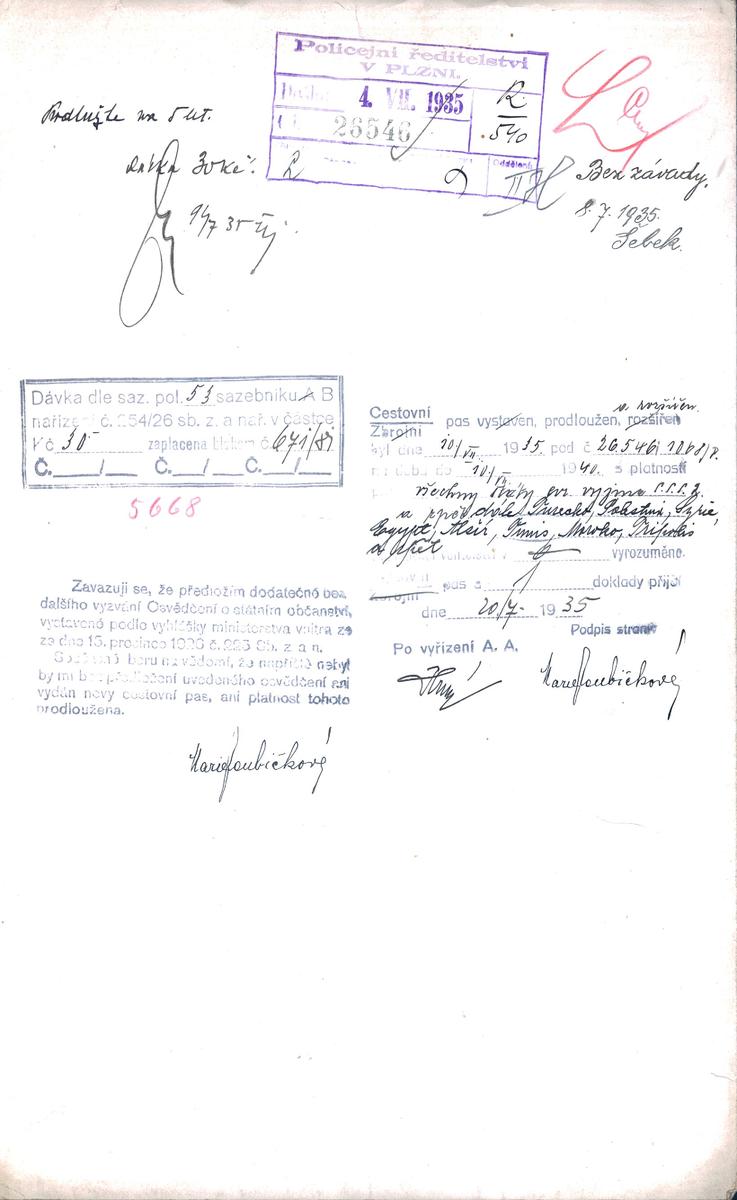 Policejní ředitelství
V PLZNI.
4. VII. 1935
26546
R
540
R
Oddělení
II
Prodlužte na 5 let.
dávka 30 Kč.
9/7 35
Bez závady.
8.7.1935.
Šebek.
Dávka dle saz. pol. 53 sazebníku A B
nařízení č. 254/26 sb. z. a nař. v částce
Kč 30 zaplacena blokem č. 671/
Č. ___/___ Č. ___/___ Č. ___/___
5668
a rozšířen.
Cestovní pas vystaven, prodloužen, rozšířen
Zbrojní
byl dne 10/VII 1935 pod č 26.546
na dobu do 10/VII 1940. s platností
všechny státy evr. vyjma S.S.S.R.
a zpět dále Turecko, Palestina, Syrie,
Egypt, Alžír, Tunis, Maroko, Tripolis
a zpět
vyrozuměno.
pas a doklady přijal
Zbrojní
dne 20/7 1935
Podpis strany
Po vyřízení A. A.
Marie Joubíčková
Zavazuji se, že předložím dodatečně bez
dalšího vyzvání Osvědčení o státním občanství,
vystavené podle vyhlášky ministerstva vnitra ze
ze dne 15. prosince 1926 č. 225 Sb. z. a n.
Současně beru na vědomí, že napříště nebyl
by mi bez předložení uvedeného osvědčení ani
vydán nový cestovní pas, ani platnost tohoto
prodloužena.
Marie Joubíčková